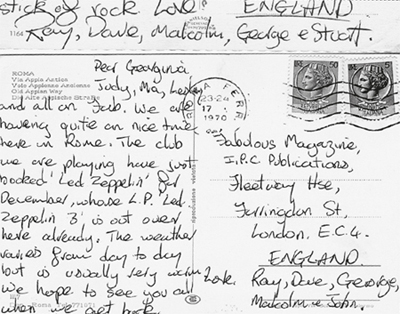 stick of rock Love ENGLAND
1164 Ray, Dave, Malcolm, George & Stuart.
ROMA
Via Appia Antica
Voie Appienne Ancienne
Old Appian Way
Die Alte Appische Straße
Dear Georgina
Judy, Ma,
and all on Fab. We are
having quite an nice time
here in Rome. The club
we are playing have just
booked 'Led Zeppelin' for
December, whose L.P. 'Led
Zeppelin 3' is out over
here already. The weather
varies from day to day
but is usually very warm
We hope to see you all
when we get back
FERR
23-24
17
1970
50
Fabulous Magazine,
I.P.C Publications,
Fleetway Hse,
Farringdon St,
London. E.C.4.
ENGLAND
Love Ray, Dave, George,
Malcolm & John.